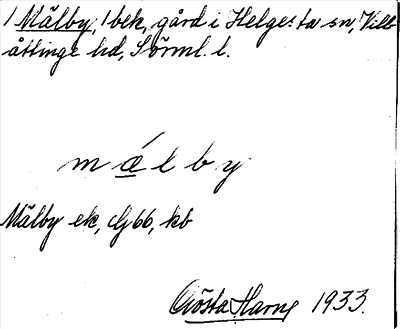 1 Mälby, 1 bek, gård i Helgesta sn, Vill-
åttinge hd, Sörml. l.
mälby
Mälby ek, dj 66, kb
Gösta Harng 1933.